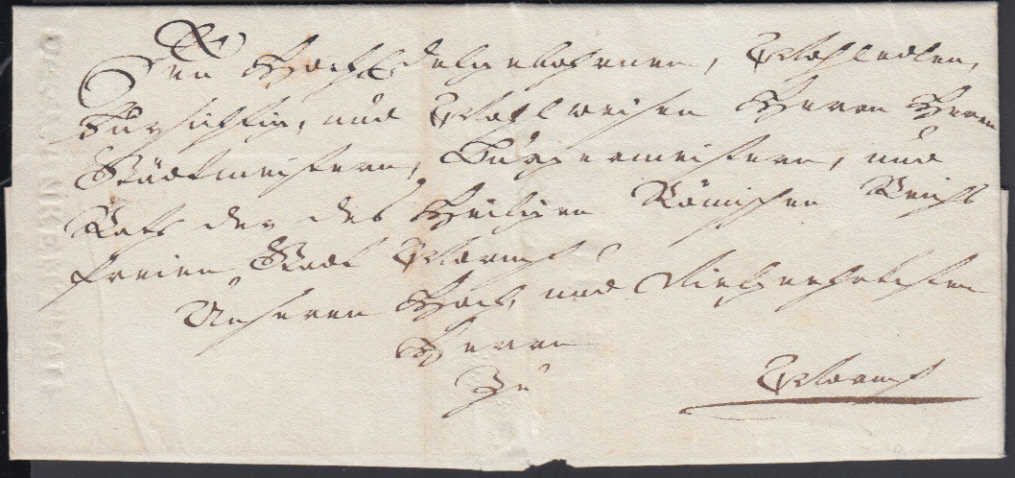 Den HochEdelgebohrnen, Wohledlen,
Fürsichtig, und Wohlweisen Herren Herren
Städtmeistern, Bürgermeistern, und
Rath der des Heiligen Römischen Reichs
freien Stadt Worms
Unseren Hoch, und Vielgeehrtesten
Herren
Zu
Worms